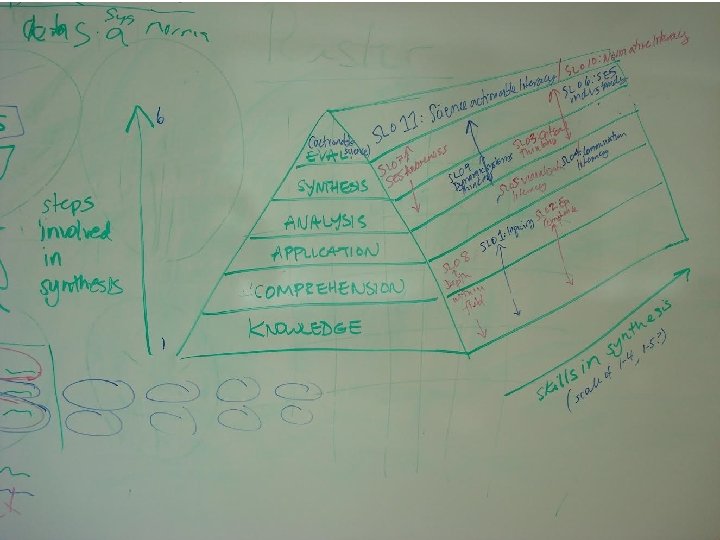 data s. a
sys
norma
6
steps
involved
in
synthesis
1
EVAL.
SYNTHESIS
ANALYSIS
APPLICATION
COMPREHENSION
KNOWLEDGE
SLO 11: Science actionable literacy / SLO 10: Normative literacy
SLO 6: SES
understanding
SLO 7:
SES Awareness
SLO 9
Dynamic systems
thinking
SLO 3: Critical
Thinking
SLO 5:
literacy
SLO 4: Communication
literacy
SLO 8
Depth
within
field
SLO 1: Inquiry
SLO 2:
skills in synthesis
(scale of 1-4, 1-5?)